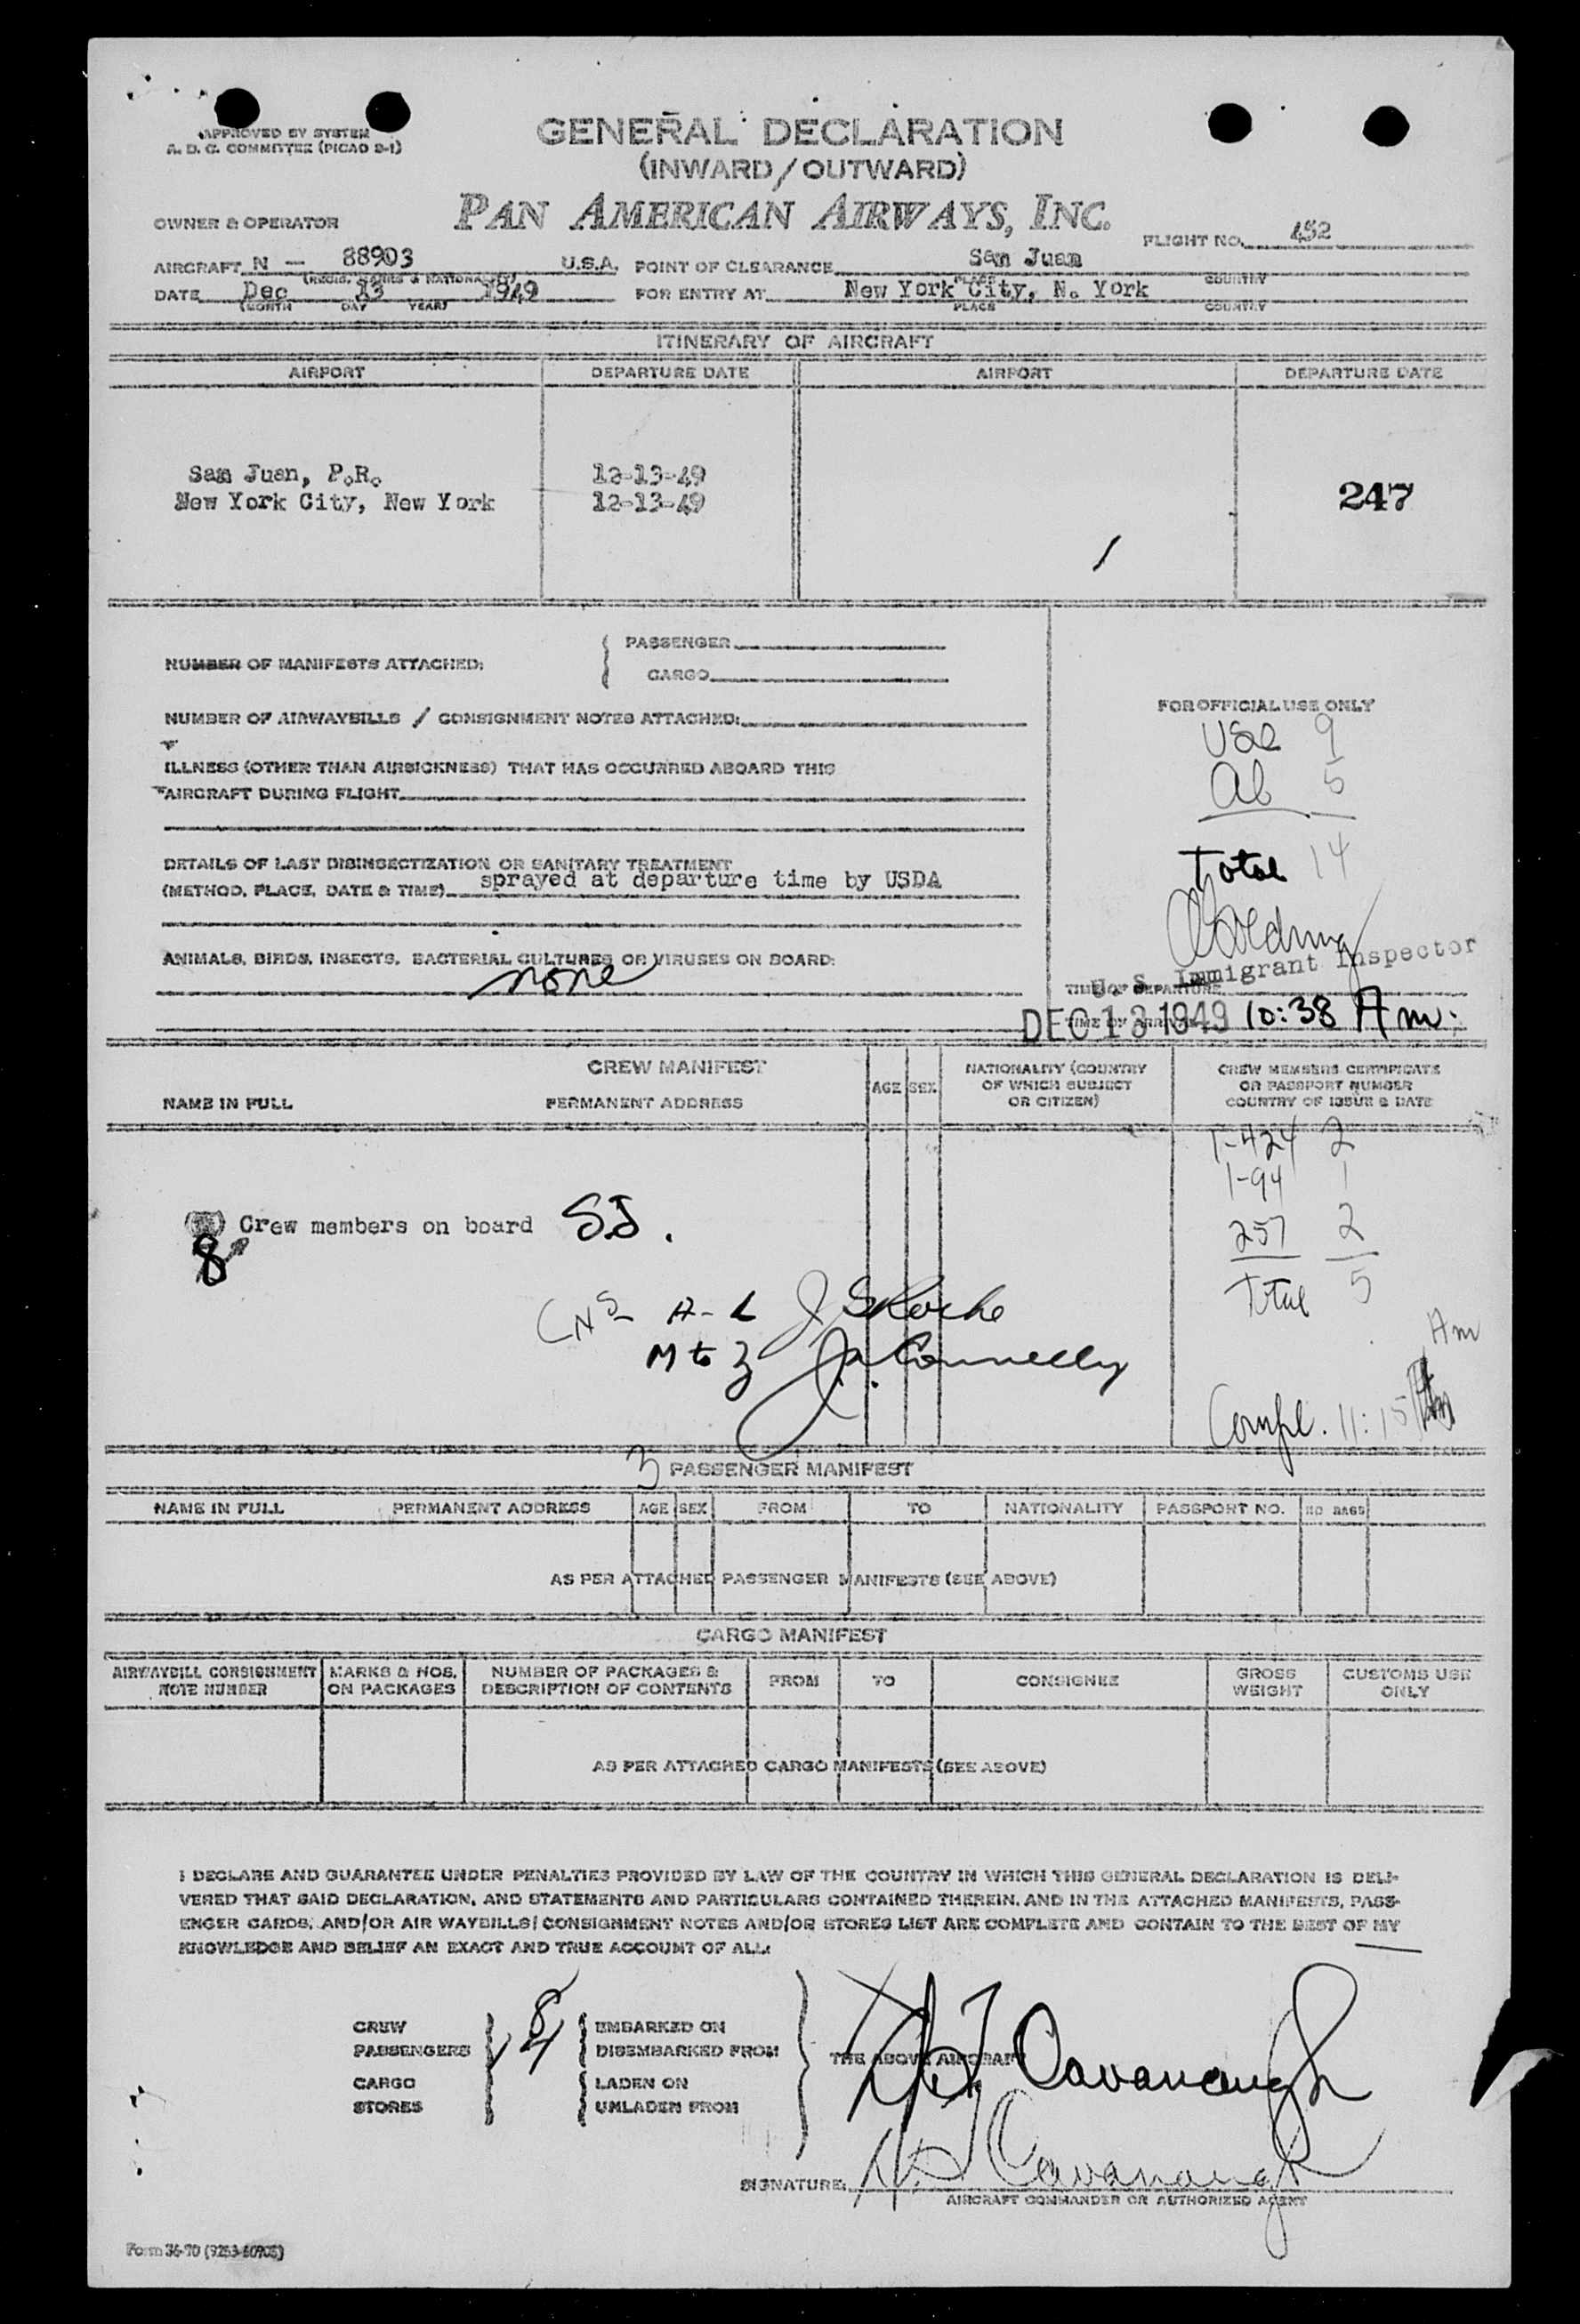 APPROVED BY SYSTEM
A. D. C. COMMITTEE (PICAO 2-1)
GENERAL DECLARATION
(INWARD/OUTWARD)
OWNER & OPERATOR PAN AMERICAN AIRWAYS, INC. FLIGHT NO. 452
AIRCRAFT N - 88903 U.S.A. POINT OF CLEARANCE San Juan
(REGIS. MARKS & NATIONALITY) PLACE COUNTRY
DATE Dec 13 1949 FOR ENTRY AT New York City, N. York
(MONTH DAY YEAR) PLACE COUNTRY
ITINERARY OF AIRCRAFT
AIRPORT DEPARTURE DATE AIRPORT DEPARTURE DATE
San Juan, P.R. 12-13-49
New York City, New York 12-13-49 247
NUMBER OF MANIFESTS ATTACHED: PASSENGER
CARGO
NUMBER OF AIRWAYBILLS / CONSIGNMENT NOTES ATTACHED:
ILLNESS (OTHER THAN AIRSICKNESS) THAT HAS OCCURRED ABOARD THIS
AIRCRAFT DURING FLIGHT
DETAILS OF LAST DISINSECTIZATION OR SANITARY TREATMENT
(METHOD, PLACE, DATE & TIME) sprayed at departure time by USDA
ANIMALS, BIRDS, INSECTS, BACTERIAL CULTURES OR VIRUSES ON BOARD:
none
FOR OFFICIAL USE ONLY
USC 9
Ab 5
Total 14
U. S. Immigrant Inspector
TIME OF DEPARTURE
TIME OF ARRIVAL
DEC 13 1949 10:38 Am.
CREW MANIFEST
NAME IN FULL PERMANENT ADDRESS AGE SEX NATIONALITY (COUNTRY OF WHICH SUBJECT OR CITIZEN) CREW MEMBERS CERTIFICATE OR PASSPORT NUMBER COUNTRY OF ISSUE & DATE
I-424 2
I-94 1
257 2
Total 5
Crew members on board SJ.
8
A-L J S Roche
M to Z J. Connelly
Am
Compl. 11:15
3 PASSENGER MANIFEST
NAME IN FULL PERMANENT ADDRESS AGE SEX FROM TO NATIONALITY PASSPORT NO. NO BAGS
AS PER ATTACHED PASSENGER MANIFESTS (SEE ABOVE)
CARGO MANIFEST
AIRWAYBILL CONSIGNMENT NOTE NUMBER MARKS & NOS. ON PACKAGES NUMBER OF PACKAGES & DESCRIPTION OF CONTENTS FROM TO CONSIGNEE GROSS WEIGHT CUSTOMS USE ONLY
AS PER ATTACHED CARGO MANIFESTS (SEE ABOVE)
I DECLARE AND GUARANTEE UNDER PENALTIES PROVIDED BY LAW OF THE COUNTRY IN WHICH THIS GENERAL DECLARATION IS DELI-
VERED THAT SAID DECLARATION, AND STATEMENTS AND PARTICULARS CONTAINED THEREIN, AND IN THE ATTACHED MANIFESTS, PASS-
ENGER CARDS, AND/OR AIR WAYBILLS/CONSIGNMENT NOTES AND/OR STORES LIST ARE COMPLETE AND CONTAIN TO THE BEST OF MY
KNOWLEDGE AND BELIEF AN EXACT AND TRUE ACCOUNT OF ALL:
CREW 8 EMBARKED ON
PASSENGERS DISEMBARKED FROM
THE ABOVE AIRCRAFT
CARGO LADEN ON
STORES UNLADEN FROM
Cavanaugh
SIGNATURE: Cavanaugh
AIRCRAFT COMMANDER OR AUTHORIZED AGENT
Form 36-70